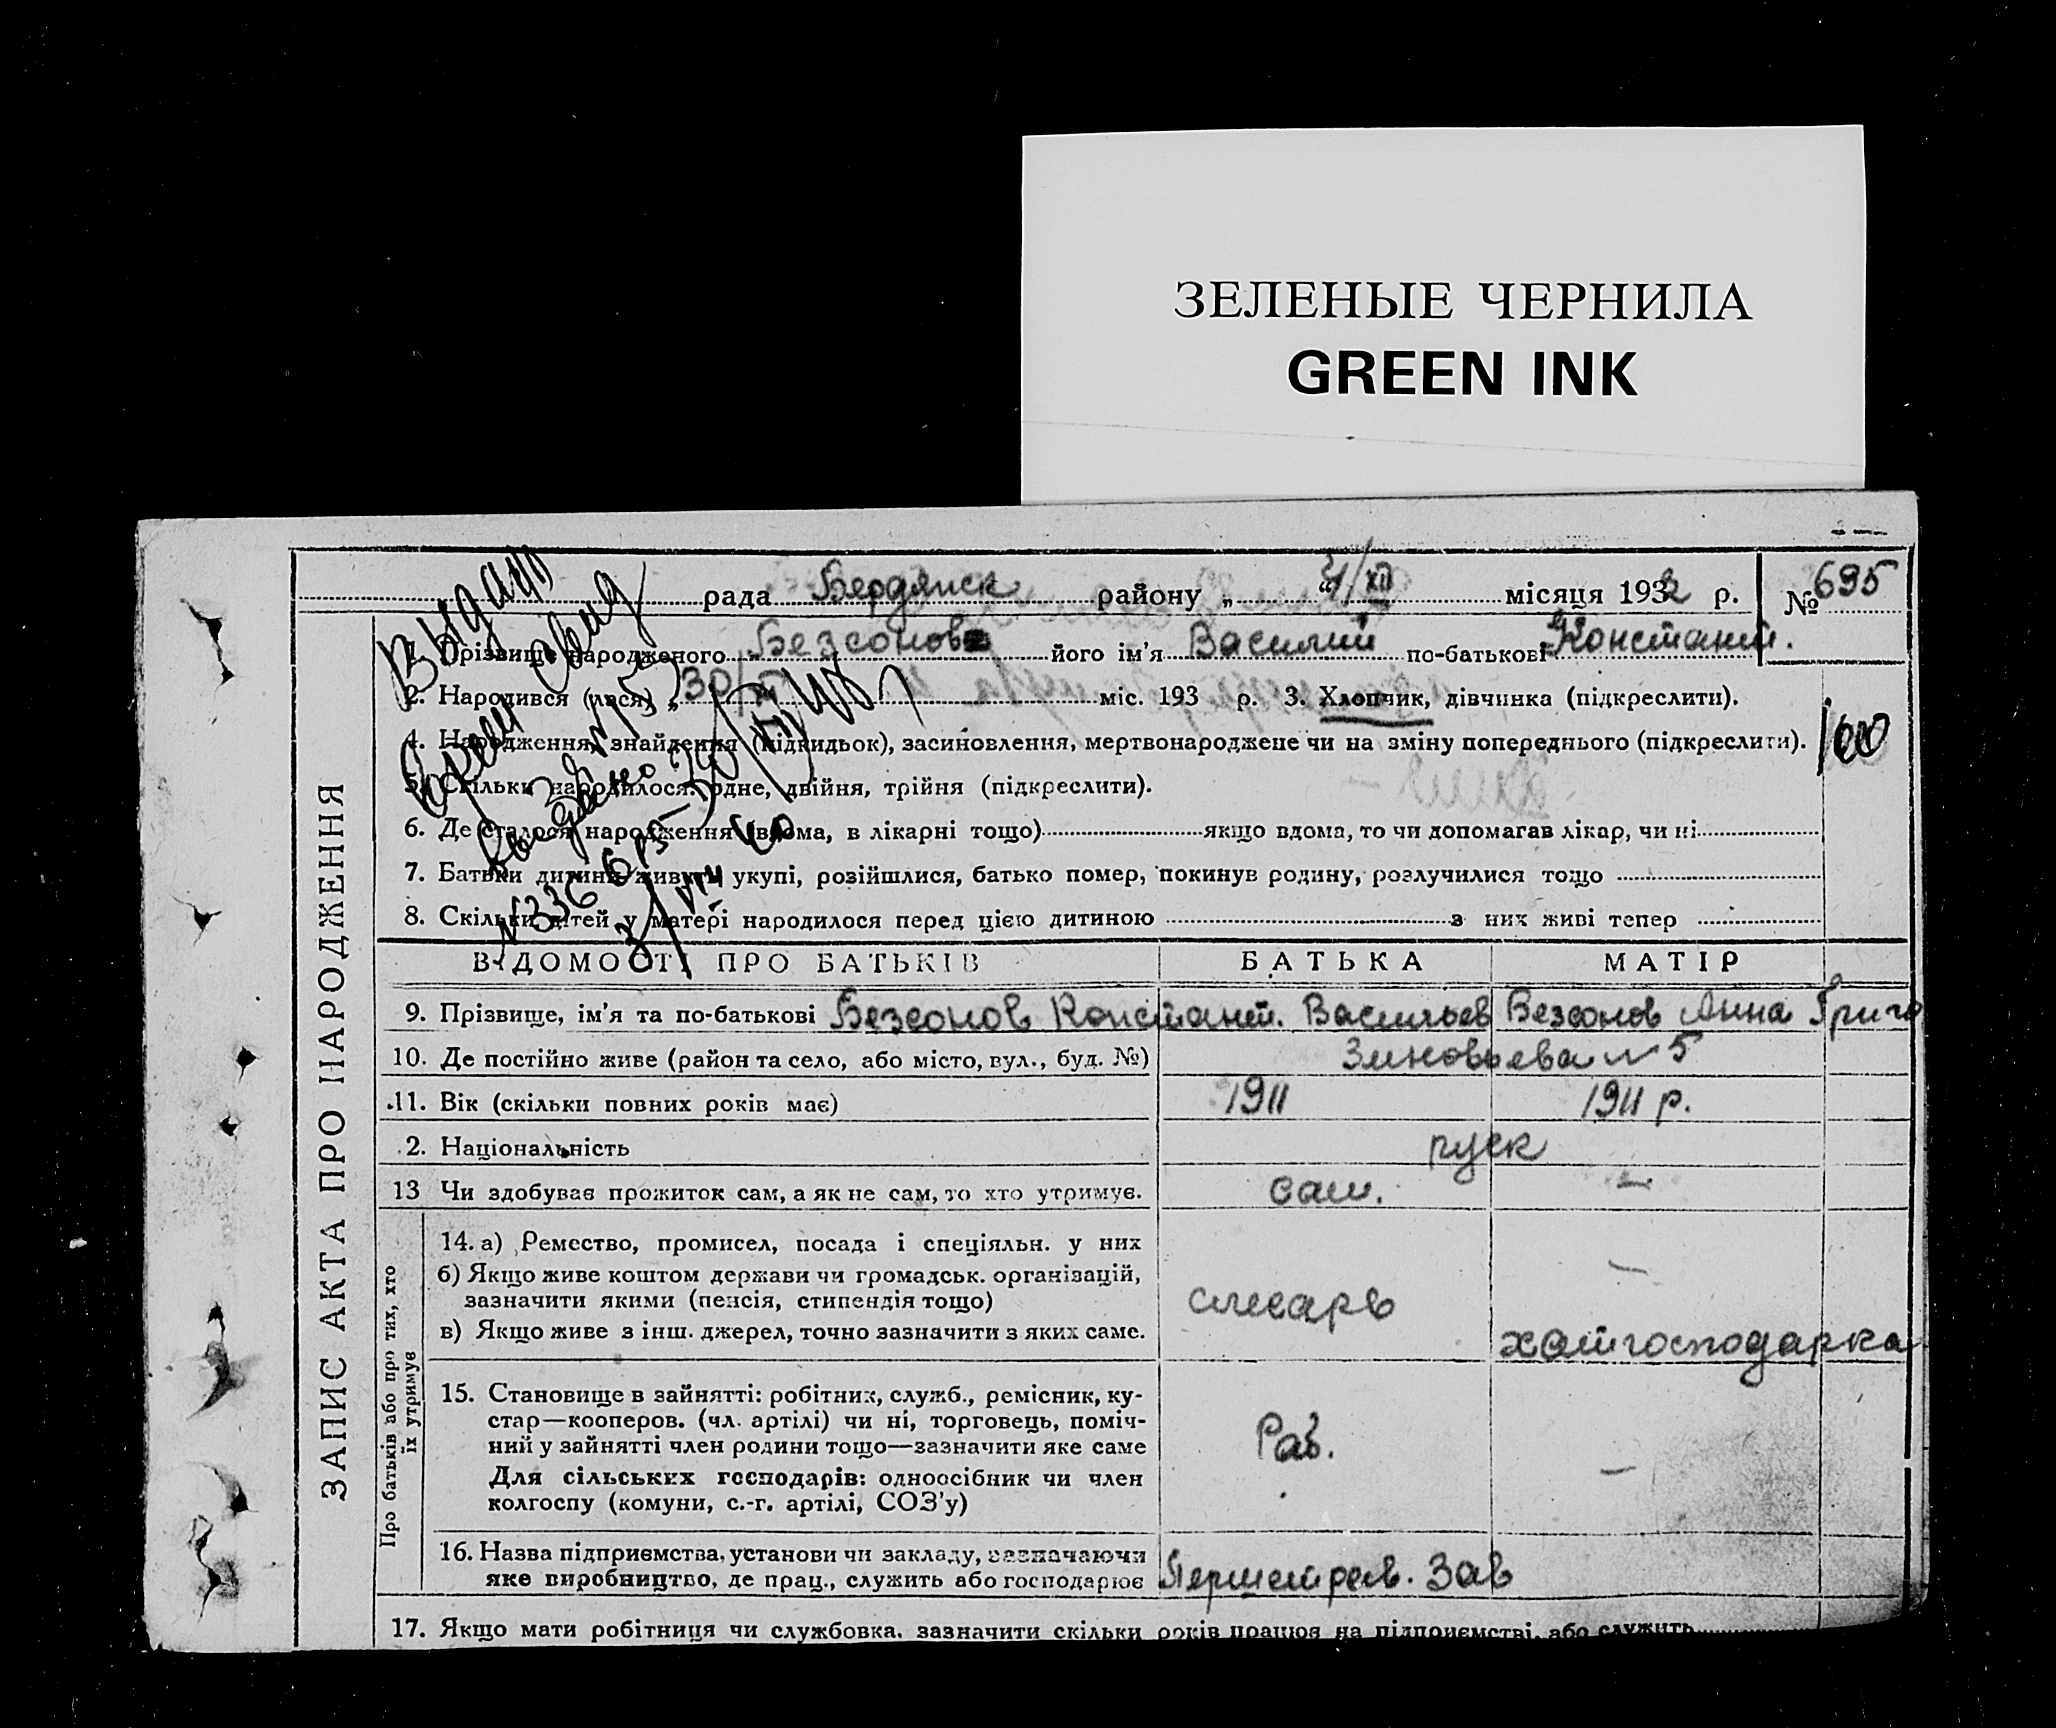 ЗЕЛЕНЫЕ ЧЕРНИЛА
GREEN INK
рада Бердянск району „ “ 4/XII місяця 1932 р. № 695
1. Прізвище народженого Безсонов його ім’я Василий по-батькові Констант.
2. Народився (лася) „ 30/XI міс. 193 р. 3. Хлопчик, дівчинка (підкреслити).
4. Народження, знайдення (підкидьок), засиновлення, мертвонароджене чи на зміну попереднього (підкреслити).
5. Скільки народилося: одне, двійня, трійня (підкреслити).
6. Де сталося народження (вдома, в лікарні тощо) якщо вдома, то чи допомагав лікар, чи ні
7. Батьки дитини живуть укупі, розійшлися, батько помер, покинув родину, розлучилися тощо
8. Скільки дітей у матері народилося перед цією дитиною з них живі тепер
ВІДОМОСТІ ПРО БАТЬКІВ БАТЬКА МАТІР
9. Прізвище, ім’я та по-батькові Безсонов Констант. Васильев Безсонов Анна Григо
10. Де постійно живе (район та село, або місто, вул., буд. №) Зиновьева № 5
11. Вік (скільки повних років має) 1911 1911 р.
2. Національність руск
13 Чи здобуває прожиток сам, а як не сам, то хто утримує. сам. —
14. а) Ремество, промисел, посада і спеціяльн. у них —
б) Якщо живе коштом держави чи громадськ. організацій,
зазначити якими (пенсія, стипендія тощо) слесарь
в) Якщо живе з інш. джерел, точно зазначити з яких саме. хатгосподарка
15. Становище в зайнятті: робітник, служб., ремісник, ку-
стар—кооперов. (чл. артілі) чи ні, торговець, поміч-
ний у зайнятті член родини тощо—зазначити яке саме Раб. —
Для сільських господарів: одноосібник чи член
колгоспу (комуни, с.-г. артілі, СОЗ’у)
16. Назва підприємства, установи чи закладу, зазначаючи
яке виробництво, де прац., служить або господарює Першетрав. Зав
17. Якщо мати робітниця чи службовка, зазначити скільки років працює на підприємстві, або служить
ЗАПИС АКТА ПРО НАРОДЖЕННЯ
Про батьків або про тих, хто
їх утримує
Выдано